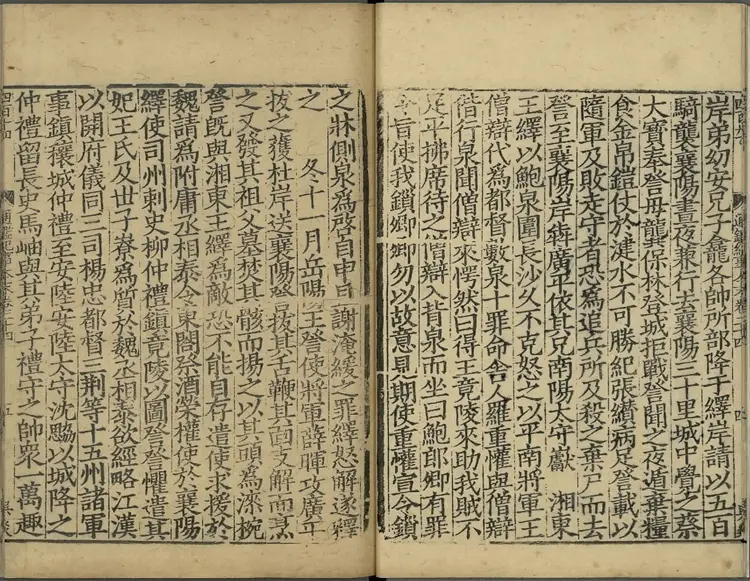 岸弟幼安兄子龕各帥所部降于繹岸請以五百
騎襲襄陽晝夜兼行去襄陽三十里城中覺之蔡
大寶奉詧母龔保林登城拒戰詧聞之夜遁棄糧
食金帛鎧仗於湕水不可勝紀張纘病足詧載以
隨軍及敗走守者恐為追兵所及殺之棄尸而去
詧至襄陽岸犇廣平依其兄南陽太守巘 湘東
王繹以鮑泉圍長沙久不克怒之以平南將軍王
僧辯代為都督數泉十罪命舍人羅重懽與僧辯
偕行泉聞僧辯來愕然曰得王竟陵來助我賊不
足平拂席待之僧辯入背泉而坐曰鮑郎卿有罪
令旨使我鎖卿卿勿以故意見期使重懽宣令鎖
之牀側泉為啓自申且謝淹緩之罪繹怒解遂釋
之 冬十一月岳陽王詧使將軍薛暉攻廣平
拔之獲杜岸送襄陽詧拔其舌鞭其面支解而烹
之又發其祖父墓焚其骸而揚之以其頭為漆椀
詧既與湘東王繹為敵恐不能自存遣使求援於
魏請為附庸丞相泰令東閤祭酒榮權使於襄陽
繹使司州刺史柳仲禮鎮竟陵以圖詧詧懼遣其
妃王氏及世子寮為質於魏丞相泰欲經略江漢
以開府儀同三司楊忠都督三荊等十五州諸軍
事鎮穰城仲禮至安陸安陸太守沈勰以城降之
仲禮留長史馬岫與其弟子禮守之帥眾一萬趣